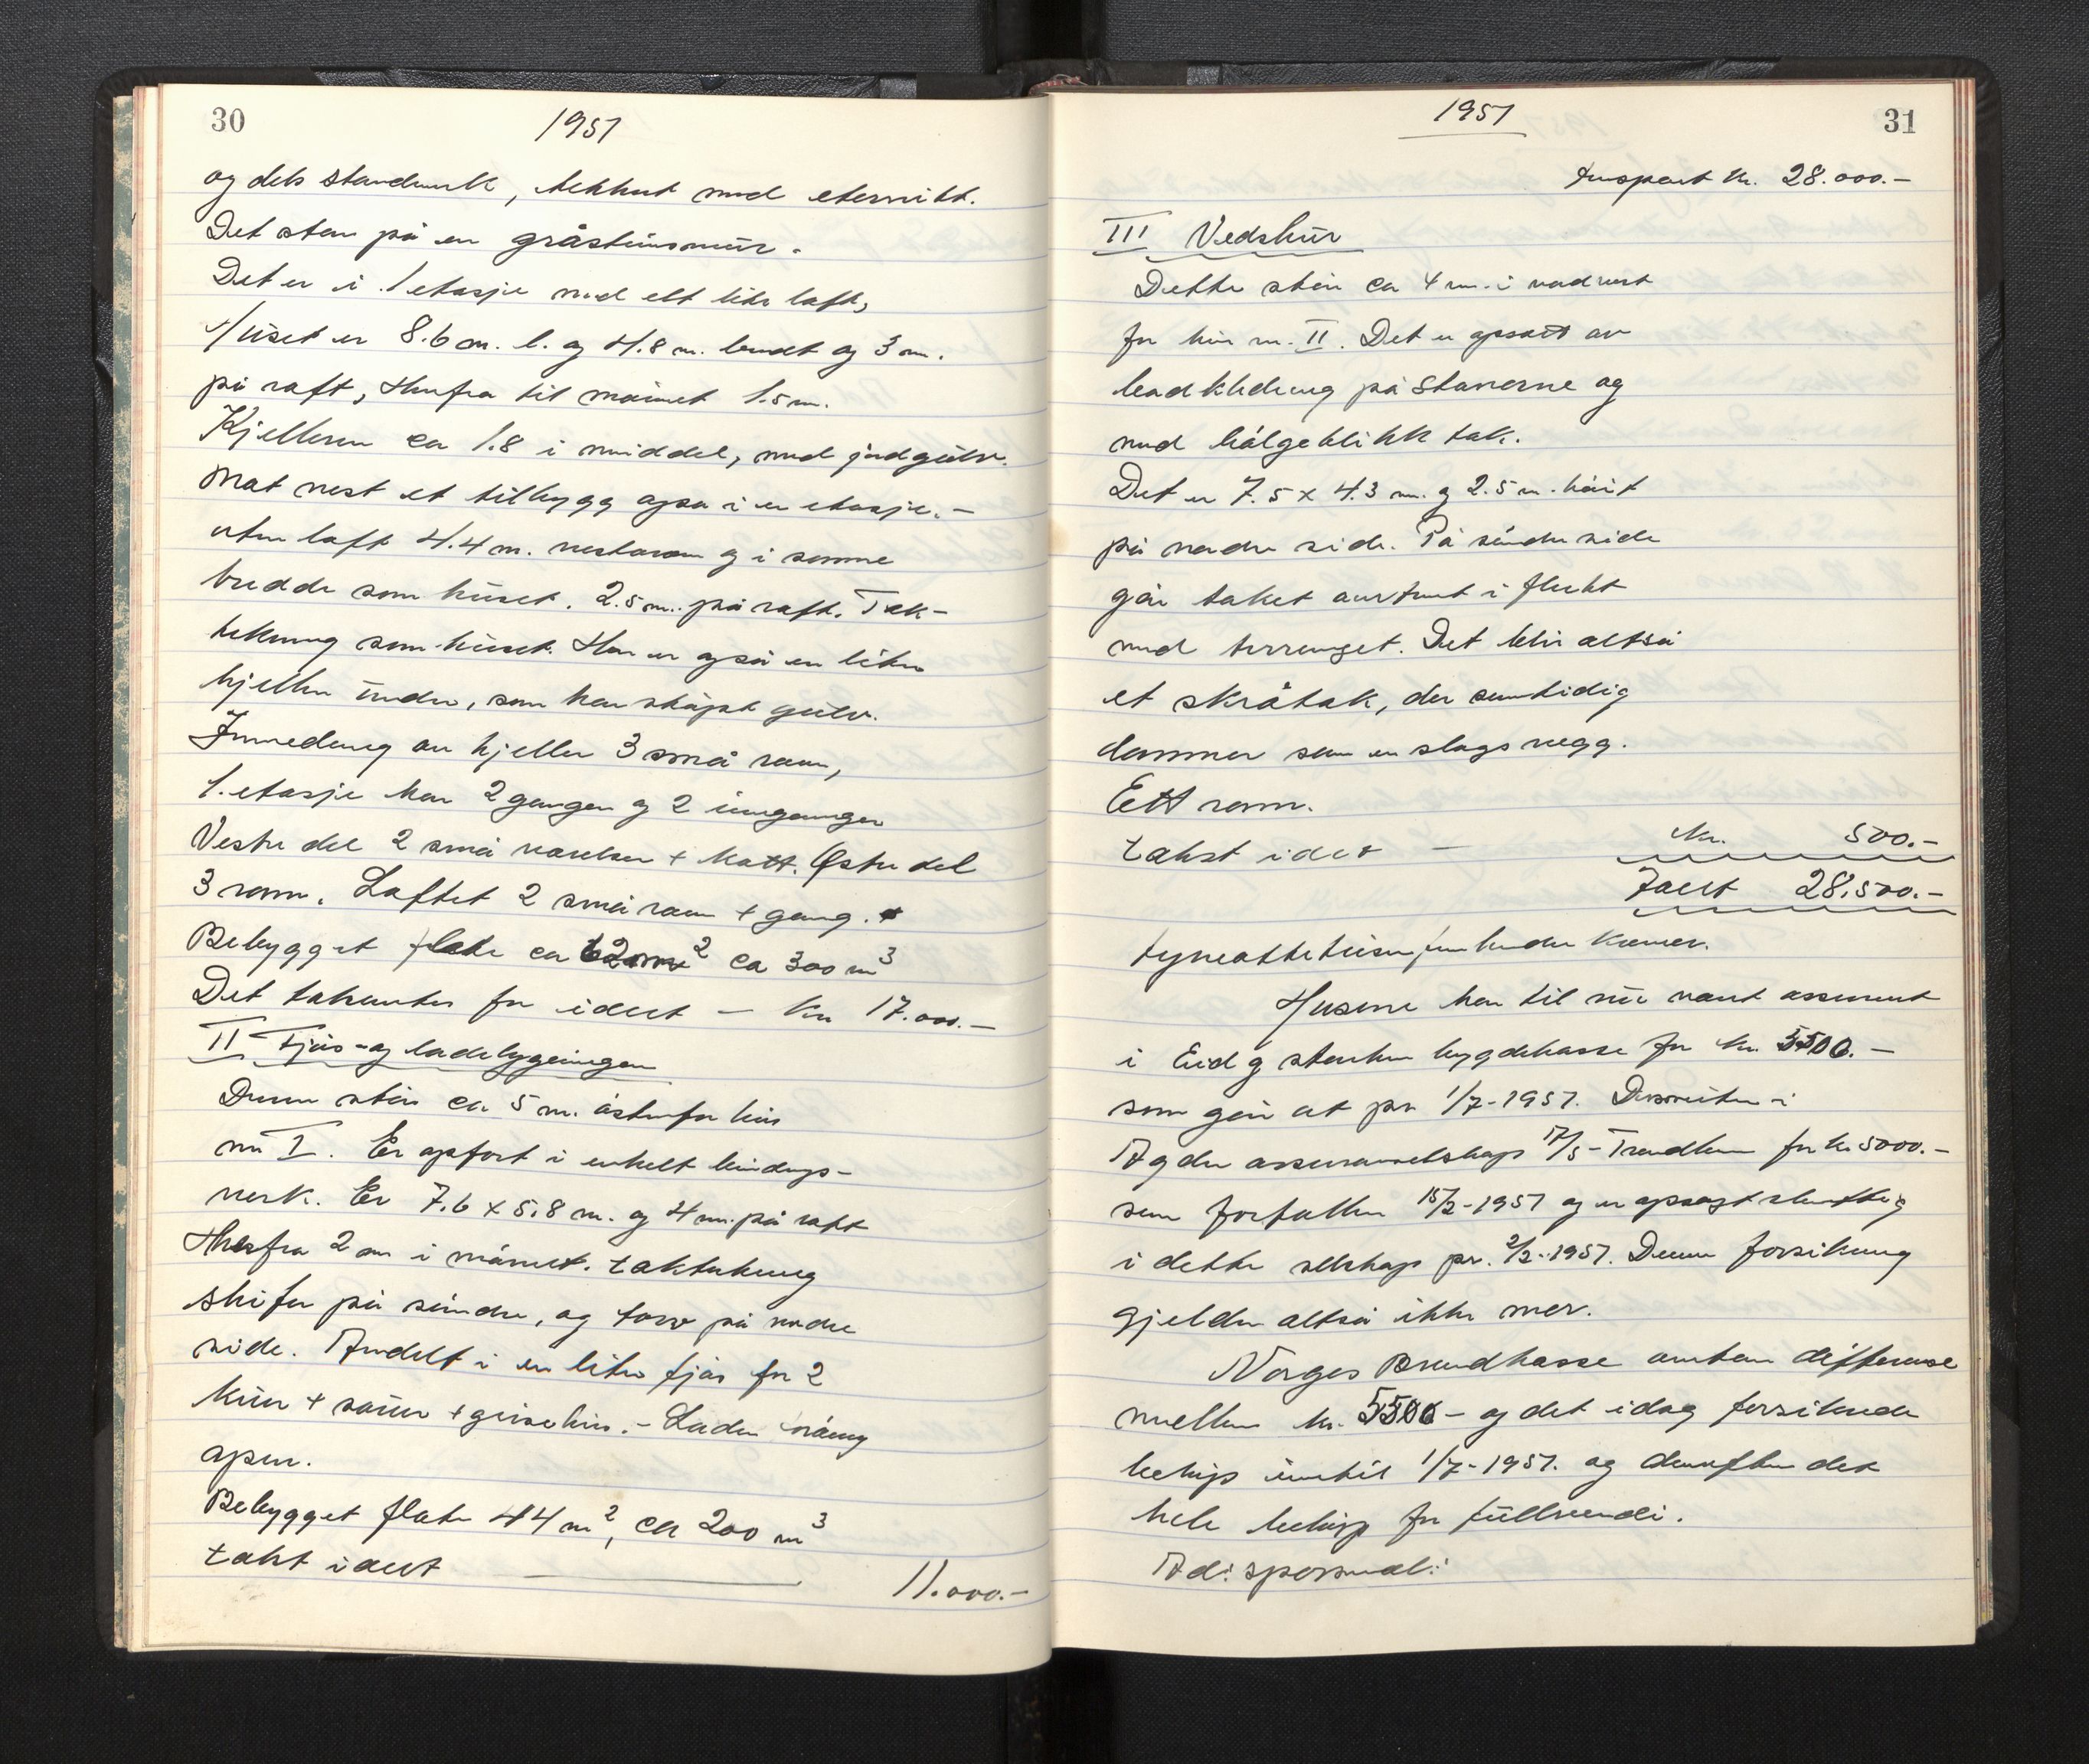 30
1951
og dels standverk, tekket med eternitt.
Det står på en gråsteinsmur.
Det er i 1 etasje med ett lite loft,
Huset er 8.6 m. l. og 4.8 m. bredt og 3 m.
på raft, Herfra til mønet 1.5 m.
Kjelleren ca 1.8 i middel, med jordgulv.
Mot vest et tilbygg også i en etasje. -
uten loft 4.4 m. vestover og i samme
bredde som huset. 2.5 m. på raft. Tak-
tekning som huset. Her er også en liten
kjeller under, som har støpt gulv.
Innredning av kjeller 3 små rom,
1. etasje har 2 ganger og 2 innganger
Vestre del 2 små værelser + kott. Østre del
3 rom. Loftet 2 små rom + gang.
Bebygget flate ca 62 m² ca 300 m³
Det taksertes for idert - kr 17.000.-
II Fjøs- og ladebygningen
Denne står ca 5 m. østenfor hus
nr I. Er opført i enkelt bindings-
verk. Er 7.6 x 5.8 m. og 4 m. på raft
Herfra 2 m i mønet. taktekning
skifer på søndre, og torv på nordre
side. Avdelt i en liten fjøs for 2
kuer + sauer + grisehus. - Laden
open.
Bebygget flate 44 m², ca 200 m³
takst idert — 11.000.-
1951
31
Transport kr. 28.000.-
III Vedskur
Dette står ca 4 m. i nordvest
for hus nr. II. Det er oppsatt av
bordkledning på staverne og
med bølgeblikk tak.
Det er 7.5 x 4.3 m. og 2.5 m. høit
på nordre side. På søndre side
går taket ned i flukt
med terrenget. Det blir altså
et skråtak, der samtidig
danner som en slags vegg.
Ett rom.
takst idet - kr. 500.-
Ialt 28.500.-
fem hundre kroner.
Husene har til nu vært assurert
i Eid og bygdekasse for kr. 5500. -
som går ut pr 1/7-1951. Dessuten i
Agder assuranselskap 17/5- for kr 5000.-
som forfaller 15/2-1951 og er opsagt
i dette selskap pr. 2/2-1951. Denne forsikring
gjelder altså ikke mer.
Norges Brandkasse overtar differanse
mellem kr. 5500 - og det idag forsikrede
beløp inntil 1/7-1951. og derefter det
hele beløp for fullverdi.
Ad: spørsmål: